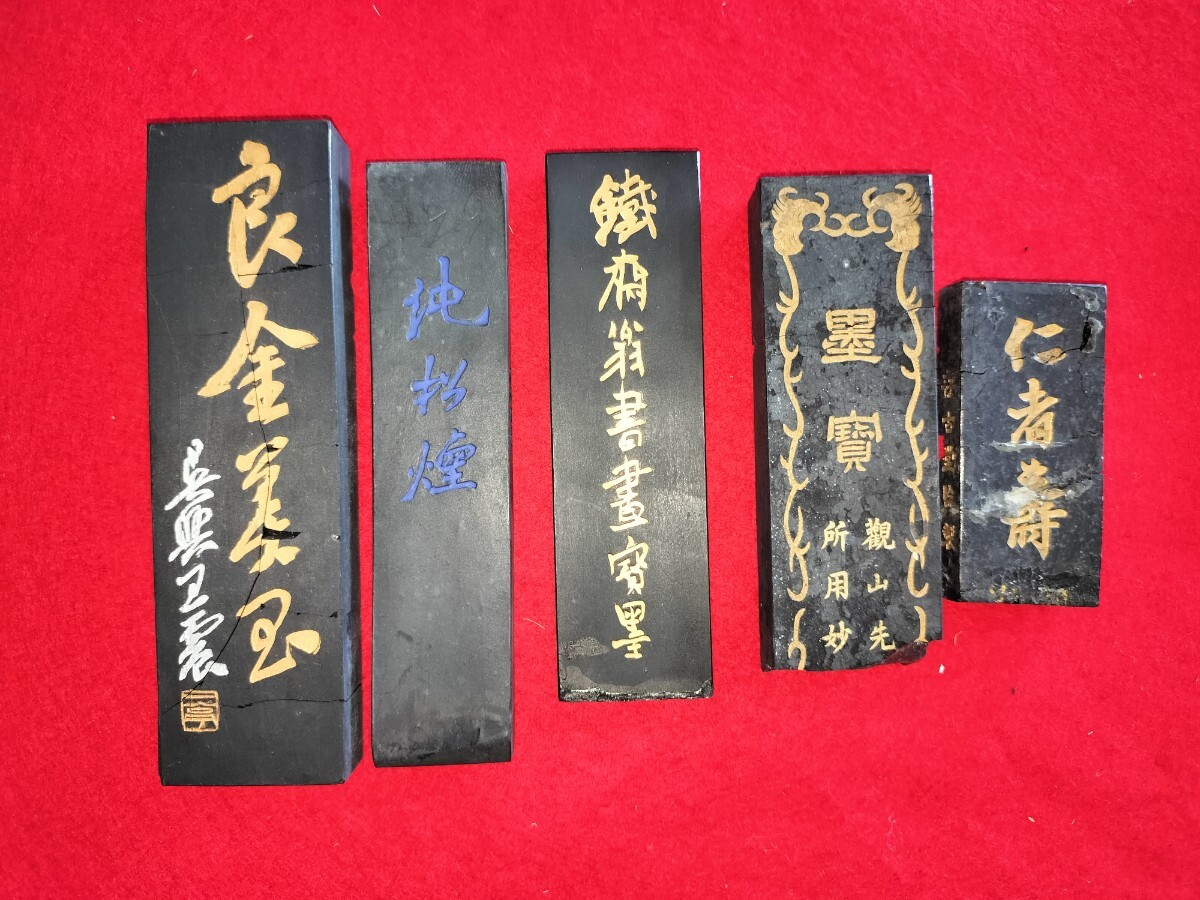 良金美玉
吳興王震
純松煙
鐵齋翁書畫寶墨
墨寶
觀山先
所用妙
仁者壽